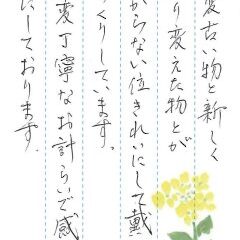 変古い物と新しく
り変えた物とが
からない位きれいにして戴
くりしています。
変丁寧なお計らいで感
にしております。